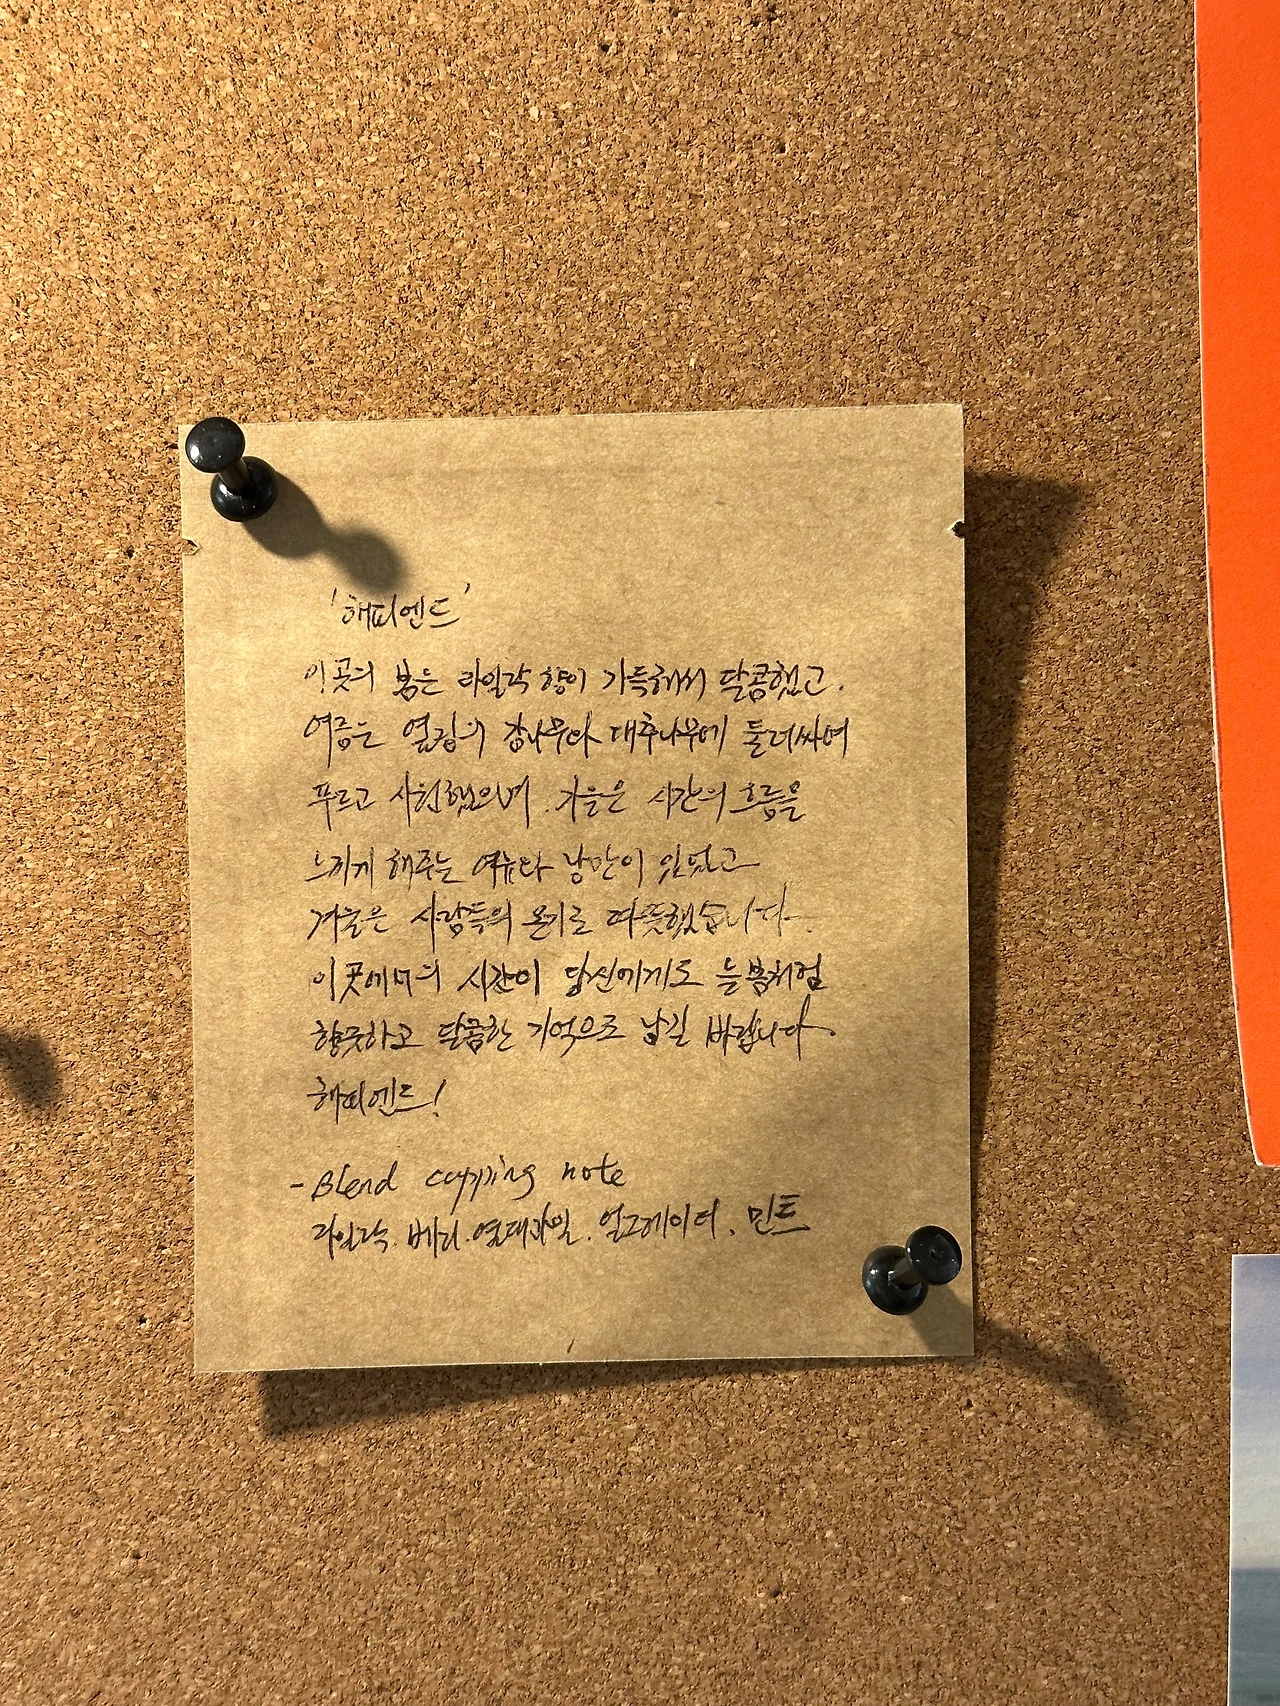 '해피엔드'
이곳의 봄은 라일락 향이 가득해서 달콤했고.
여름은 옆집의 감나무와 대추나무에 둘러싸여
푸르고 시원했으며. 가을은 시간의 흐름을
느끼게 해주는 여유와 낭만이 있었고
겨울은 사람들의 온기로 따뜻했습니다.
이곳에서의 시간이 당신에게도 늘봄처럼
향긋하고 달콤한 기억으로 남길 바랍니다.
해피엔드!
- Blend cupping note
라일락. 베리. 열대과일. 얼그레이티. 민트